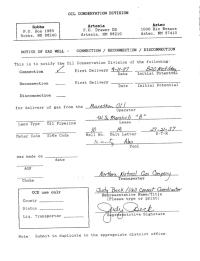 OIL CONSERVATION DIVISION
Hobbs
P.O. Box 1980
Hobbs, NM 88240
Artesia
P.O. Drawer DD
Artesia, NM 88210
Aztec
1000 Rio Brazos
Aztec, NM 87410
NOTICE OF GAS WELL - CONNECTION / RECONNECTION / DISCONNECTION
This is to notify the Oil Conservation Division of the following:
Connection ✓ First Delivery
Date Initial Potential
Reconnection First Delivery
Date Initial Potential
Disconnection
for delivery of gas from the Marathon Oil
Operator
Lease
Lease Type Oil Pipeline
Meter Code Site Code Well No. Unit Letter S-T-R
Pool
was made on
date
AOF
Choke
Northern Natural Gas Company
Transporter
OCD use only
County
Status
Liq. Transporter
Judy Bock / Field Connect Coordinator
Representative Name/Title
(Please type or print)
Judy Bock
Representative Signature
Note: Submit in duplicate to the appropriate district office.